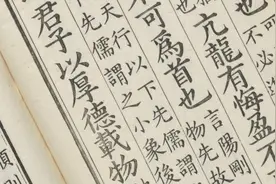 也不可必
亢龍有悔盈不
言陽剛
物先故
不可為首也
天行以下先儒謂
下先儒謂之小象後
君子以厚德載物